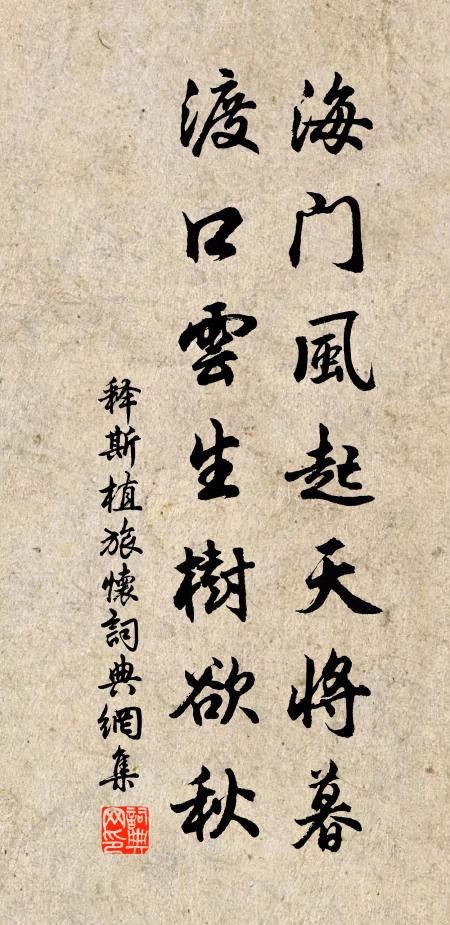 海门風起天将暮
渡口雲生樹欲秋
释斯植旅懷詞典網集
詞典
网印